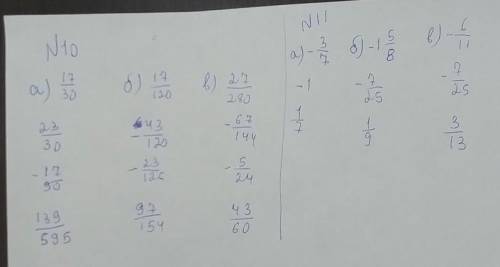 N10
а) 17/30 б) 17/120 в) 27/280
23/30 -43/120 -67/144
-17/90 -23/126 -5/24
139/595 97/154 43/60
N11
а) -3/7 б) -1 5/8 в) -6/11
-1 -7/25 -7/25
1/7 1/9 3/13